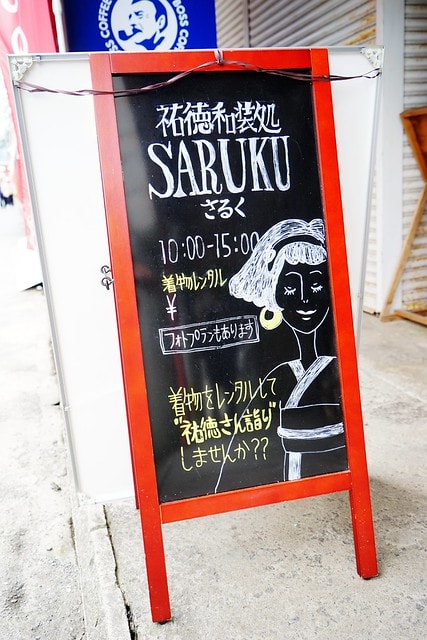 BOSS COFFEE
祐徳和装処
SARUKU
さるく
10:00-15:00
着物レンタル
¥
フォトプランもあります
着物をレンタルして
"祐徳さん詣り"
しませんか??